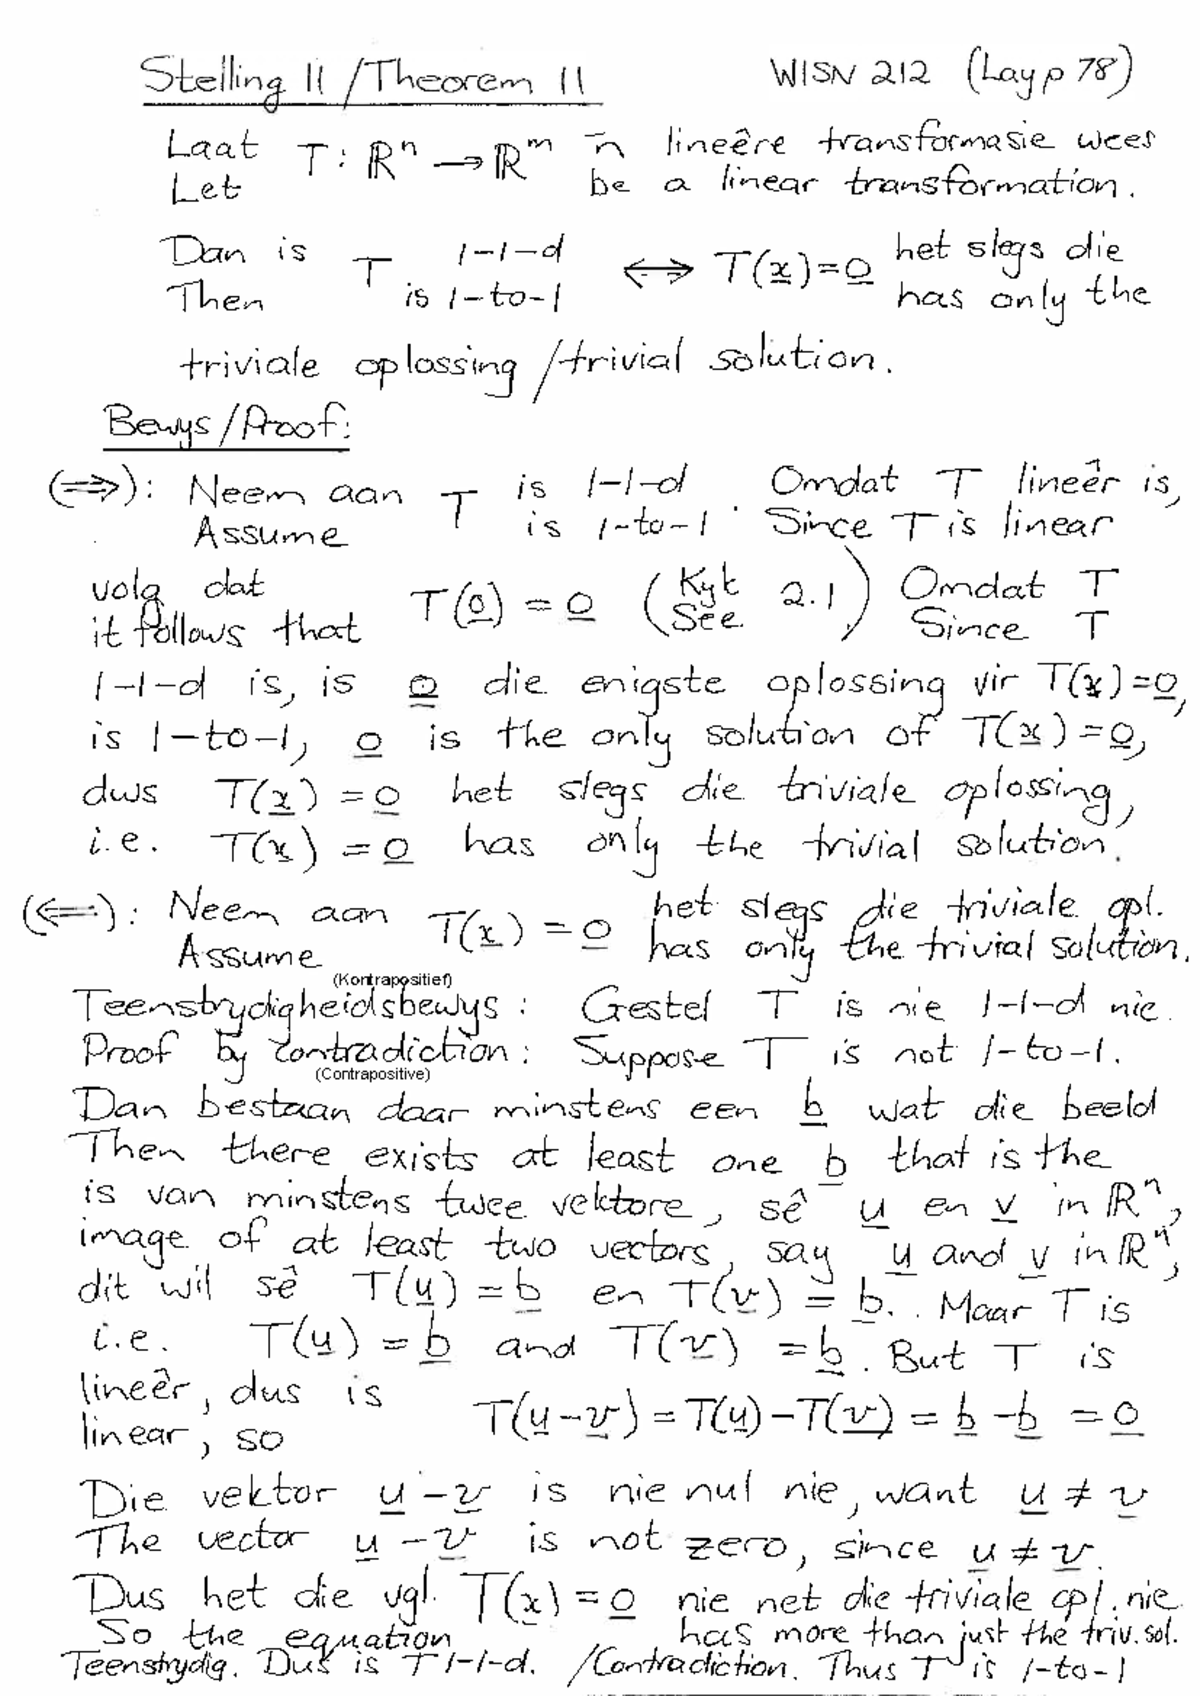 Stelling 11 / Theorem 11 WISN 212 (Lay p 78)
Laat T : ℝⁿ → ℝᵐ 'n lineêre transformasie wees
Let be a linear transformation.
Dan is T 1-1-d ⟺ T(x̲) = 0̲ het slegs die
Then is 1-to-1 has only the
triviale oplossing / trivial solution.
Bewys / Proof:
(⟹): Neem aan T is 1-1-d. Omdat T lineêr is,
Assume is 1-to-1. Since T is linear
volg dat T(0̲) = 0̲ (Kyk 2.1) Omdat T
it follows that (See 2.1) Since T
1-1-d is, is 0̲ die enigste oplossing vir T(x̲) = 0̲,
is 1-to-1, 0̲ is the only solution of T(x̲) = 0̲,
dws T(x̲) = 0̲ het slegs die triviale oplossing,
i.e. T(x̲) = 0̲ has only the trivial solution.
(⟸): Neem aan T(x̲) = 0̲ het slegs die triviale opl.
Assume has only the trivial solution.
(Kontrapositief)
Teenstrydigheidsbewys: Gestel T is nie 1-1-d nie.
Proof by contradiction: Suppose T is not 1-to-1.
(Contrapositive)
Dan bestaan daar minstens een b̲ wat die beeld
Then there exists at least one b̲ that is the
is van minstens twee vektore, sê u̲ en v̲ in ℝⁿ,
image of at least two vectors, say u̲ and v̲ in ℝⁿ,
dit wil sê T(u̲) = b̲ en T(v̲) = b̲. Maar T is
i.e. T(u̲) = b̲ and T(v̲) = b̲. But T is
lineêr, dus is T(u̲-v̲) = T(u̲)-T(v̲) = b̲-b̲ = 0̲
linear, so
Die vektor u̲-v̲ is nie nul nie, want u̲ ≠ v̲
The vector u̲-v̲ is not zero, since u̲ ≠ v̲.
Dus het die vgl. T(x̲) = 0̲ nie net die triviale opl. nie.
So the equation has more than just the triv. sol.
Teenstrydig. Dus is T 1-1-d. /Contradiction. Thus T is 1-to-1